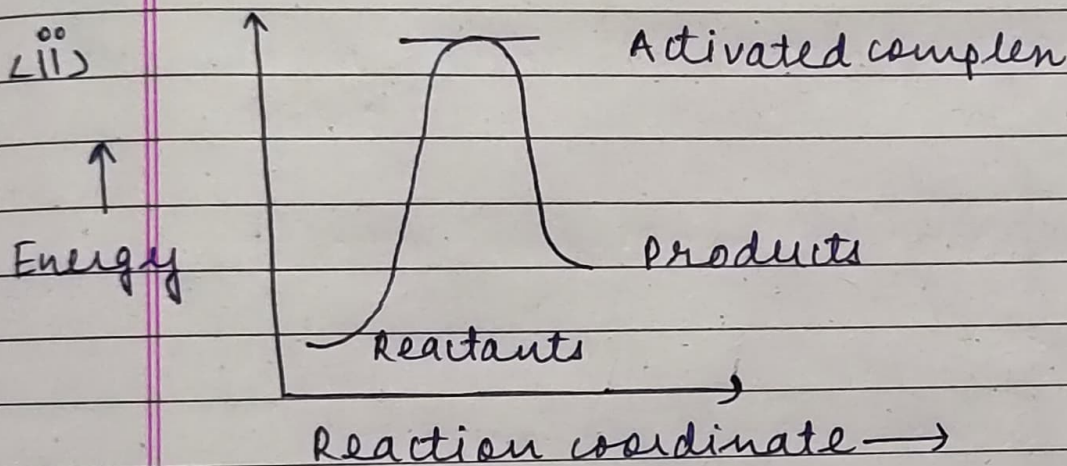 <ii>
Activated complex
Energy
Products
Reactants
Reaction coordinate